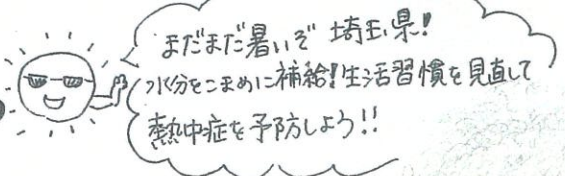 まだまだ暑いぞ 埼玉県!
水分をこまめに補給!生活習慣を見直して
熱中症を予防しよう!!